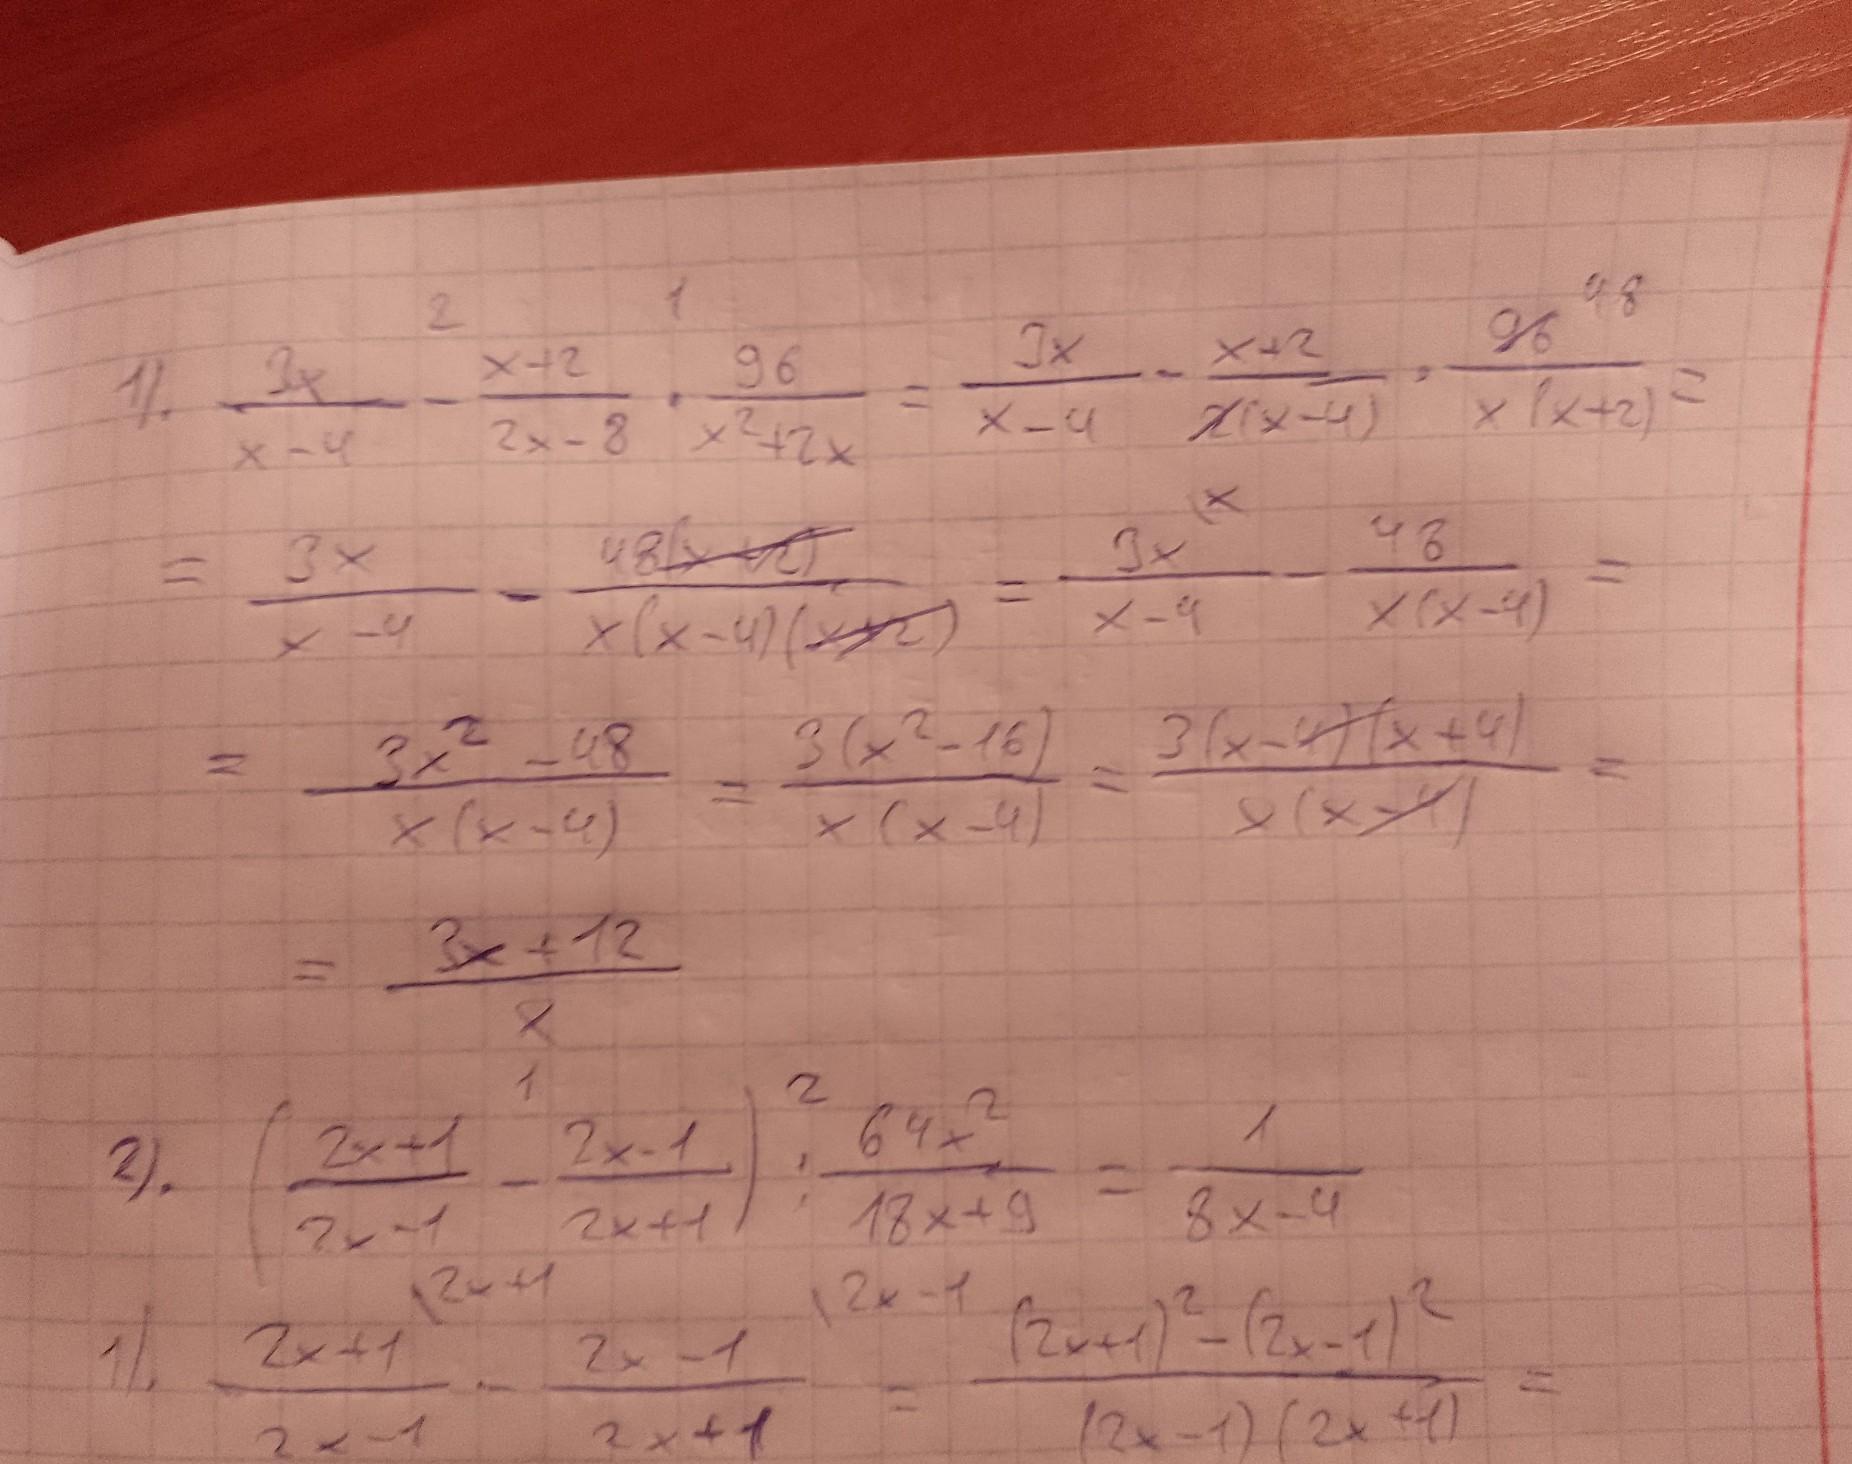 2 1
1). 3x/(x-4) - (x+2)/(2x-8) · 96/(x²+2x) = 3x/(x-4) - (x+2)/(2(x-4)) · 96 48/(x(x+2)) =
= 3x/(x-4) - 48(x+2)/(x(x-4)(x+2)) = 3x \x/(x-4) - 48/(x(x-4)) =
= (3x²-48)/(x(x-4)) = 3(x²-16)/(x(x-4)) = 3(x-4)(x+4)/(x(x-4)) =
= (3x+12)/x
1 2
2). ((2x+1)/(2x-1) - (2x-1)/(2x+1)) : 64x²/(18x+9) = 1/(8x-4)
1). (2x+1) \2x+1/(2x-1) - (2x-1) \2x-1/(2x+1) = ((2x+1)²-(2x-1)²)/((2x-1)(2x+1)) =